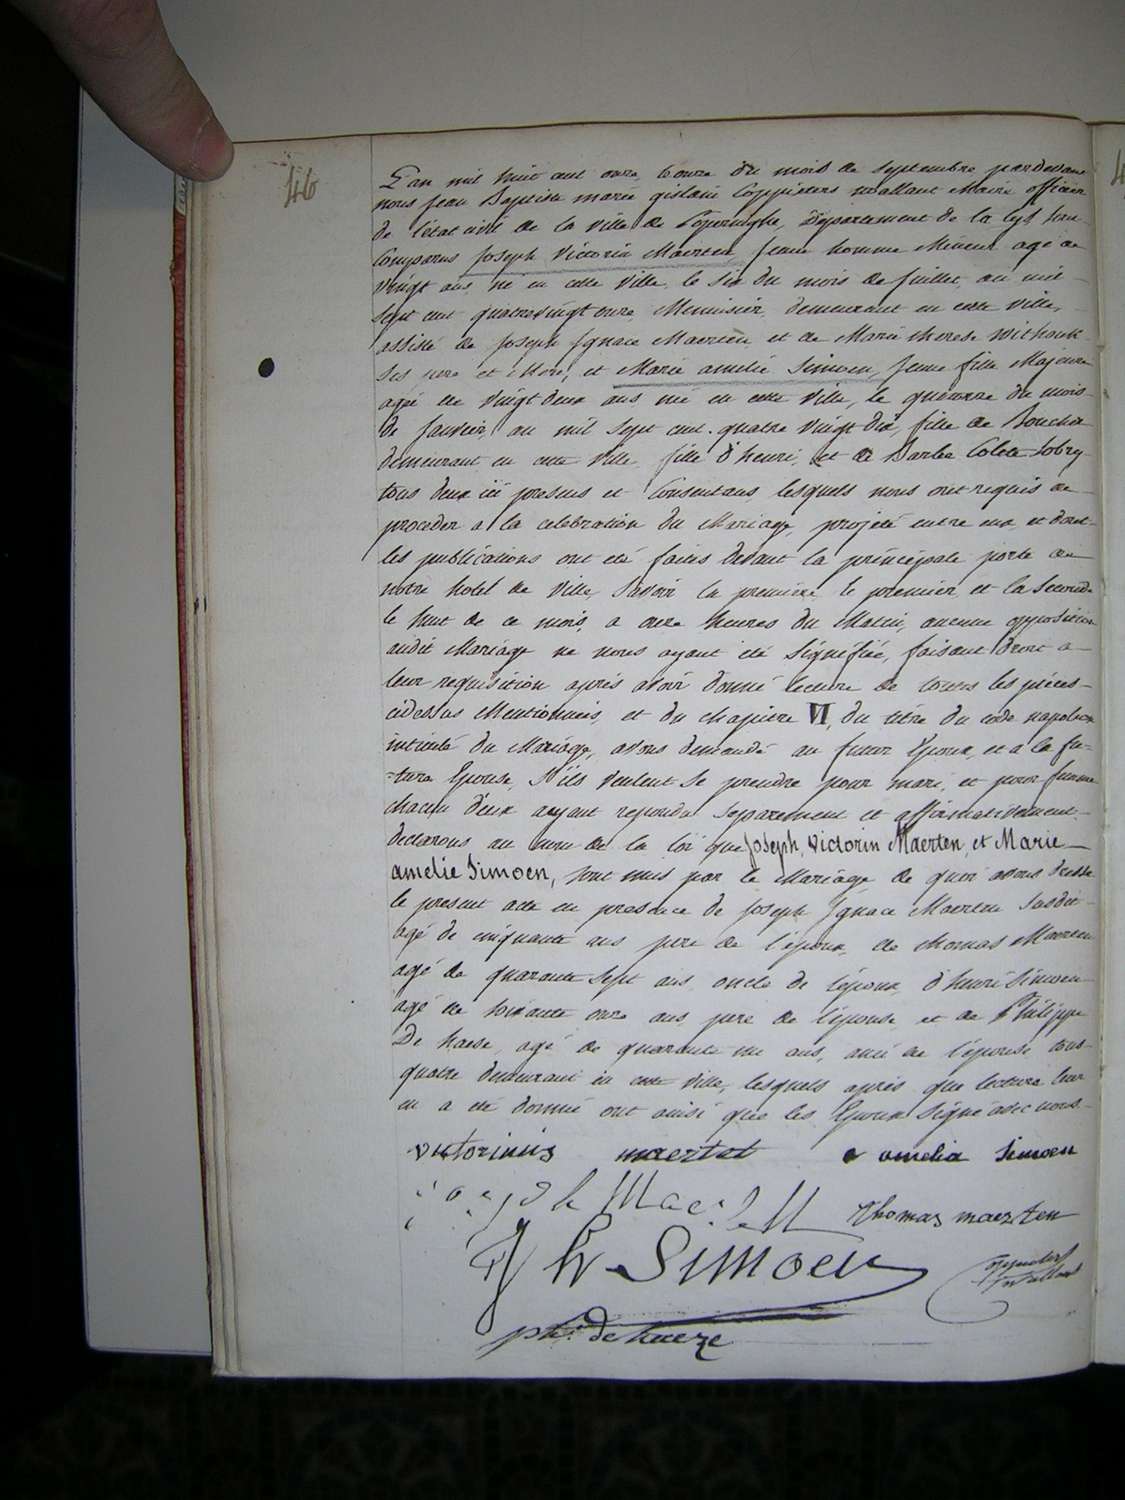 46
L'an mil huit cent onze, le onze du mois de septembre pardevant
nous jean Baptiste marie gislain Coppieters wallant Maire officier
de l'état civil de la ville de Poperinghe, Département de la Lys, sont
Comparus Joseph Victorin Maerten, jeune homme Mineur agé de
vingt ans, né en cette ville, le six du mois de juillet, an mil
sept cent quatrevingt onze, Menuisier, demeurant en cette ville,
assisté de joseph Ignace Maerten et de Marie therese withouck
ses pere et Mere; et Marie amelie Simoen, jeune fille Majeure
agée de vingt deux ans née en cette ville, le quatorze du mois
de janvier, an mil sept cent quatre vingt dix, fille de Boucher
demeurant en cette ville, fille d'henri, et de Barbe Colete Sobry
tous deux ici presens et Consentans, lesquels nous ont requis de
proceder a la celebration du Mariage, projeté entre eux, et dont
les publications ont été faites devant la principale porte de
notre hotel de ville, savoir la premiere, le premier, et la seconde
le huit de ce mois, a onze heures du Matin, aucune opposition
audit Mariage ne nous ayant été Signifiée, faisant droit a
leur requisition après avoir donné lecture de toutes les pièces
cidessus Mentionnées, et du chapitre VI, du titre du code napoleon
intitulé du Mariage, avons demandé au futur Epoux, et à la fu-
-ture Epouse, S'ils veulent se prendre pour mari, et pour femme
chacun d'eux ayant repondu separement et affirmativement
declarons au nom de la loi que Joseph, Victorin Maerten, et Marie
amelie Simoen, sont unis par le Mariage, de quoi avons dressé
le present acte en presence de joseph Ignace Maerten susdit
agé de cinquante ans pere de l'époux, de thomas Maerten
agé de quarante sept ans oncle de l'époux, d'henri Simoen
agé de soixante onze ans, pere de l'épouse, et de Philippe
De haese, agé de quarante un ans, ami de l'épouse tous
quatre demeurant en cette ville, lesquels après que lecture leur
en a été donné ont ainsi que les Epoux signé avec nous.
victorinis maertet amelia Simoen
Thomas maerten
Simoen
phi: de haeze